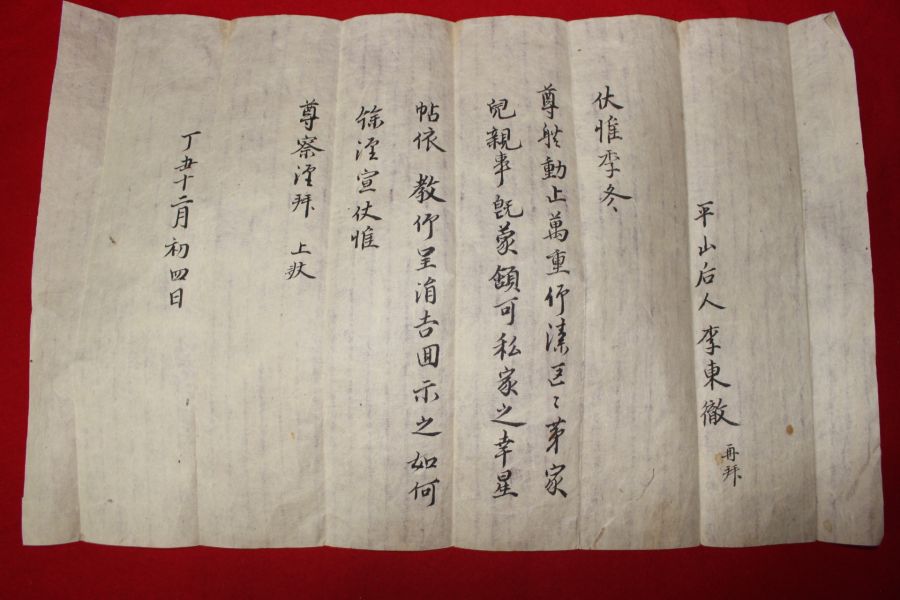 平山后人李東徹 再拜
伏惟季冬
尊體動止萬重仰溸區〻第家
兒親事旣蒙頷可私家之幸星
帖依 教仰呈涓吉囬示之如何
餘湮宣伏惟
尊察湮拜 上狀
丁丑十二月初四日